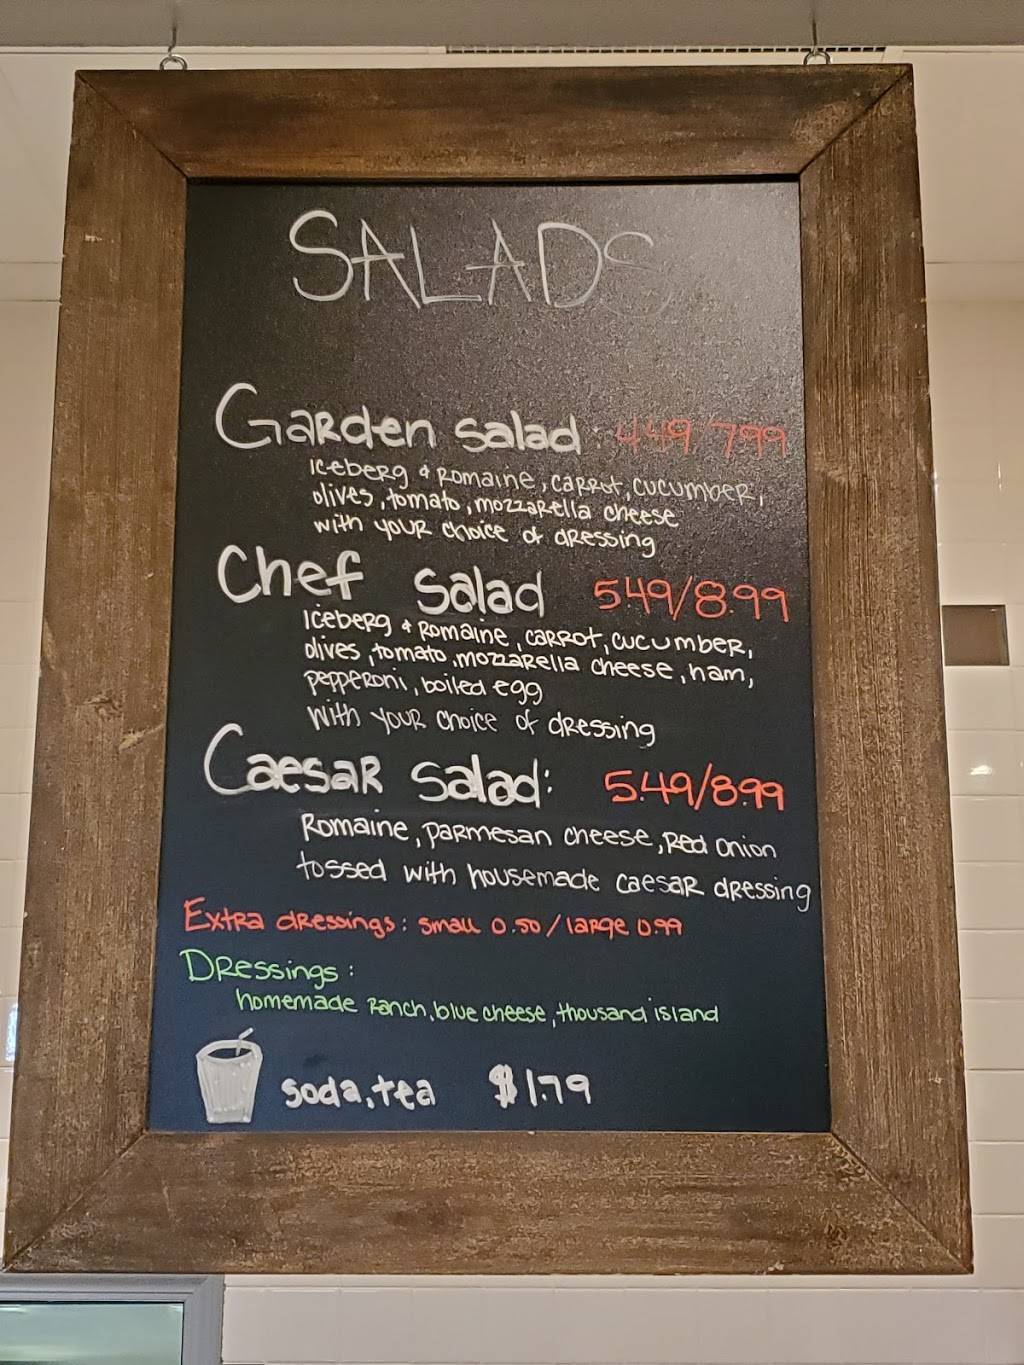 SALADS
Garden salad 4.49/7.99
Iceberg & Romaine, carrot, cucumber,
olives, tomato, mozzarella cheese
with your choice of dressing
Chef salad 5.49/8.99
Iceberg & Romaine, carrot, cucumber,
olives, tomato, mozzarella cheese, ham,
pepperoni, boiled egg
with your choice of dressing
Caesar salad: 5.49/8.99
Romaine, parmesan cheese, red onion
tossed with housemade caesar dressing
Extra dressings: small 0.50/large 0.99
Dressings:
homemade Ranch, blue cheese, thousand island
soda, tea $1.79